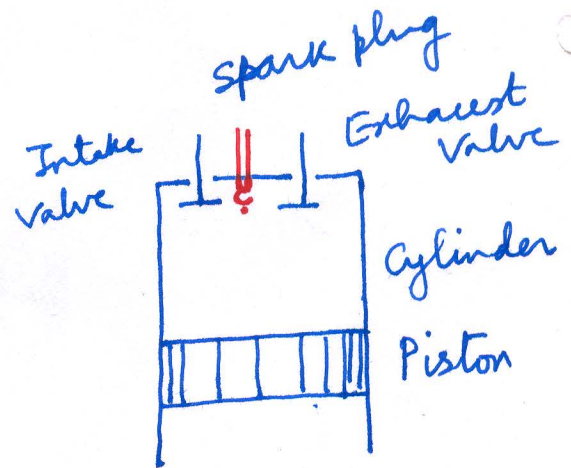 Spark plug
Intake
valve
Exhaust
valve
Cylinder
Piston